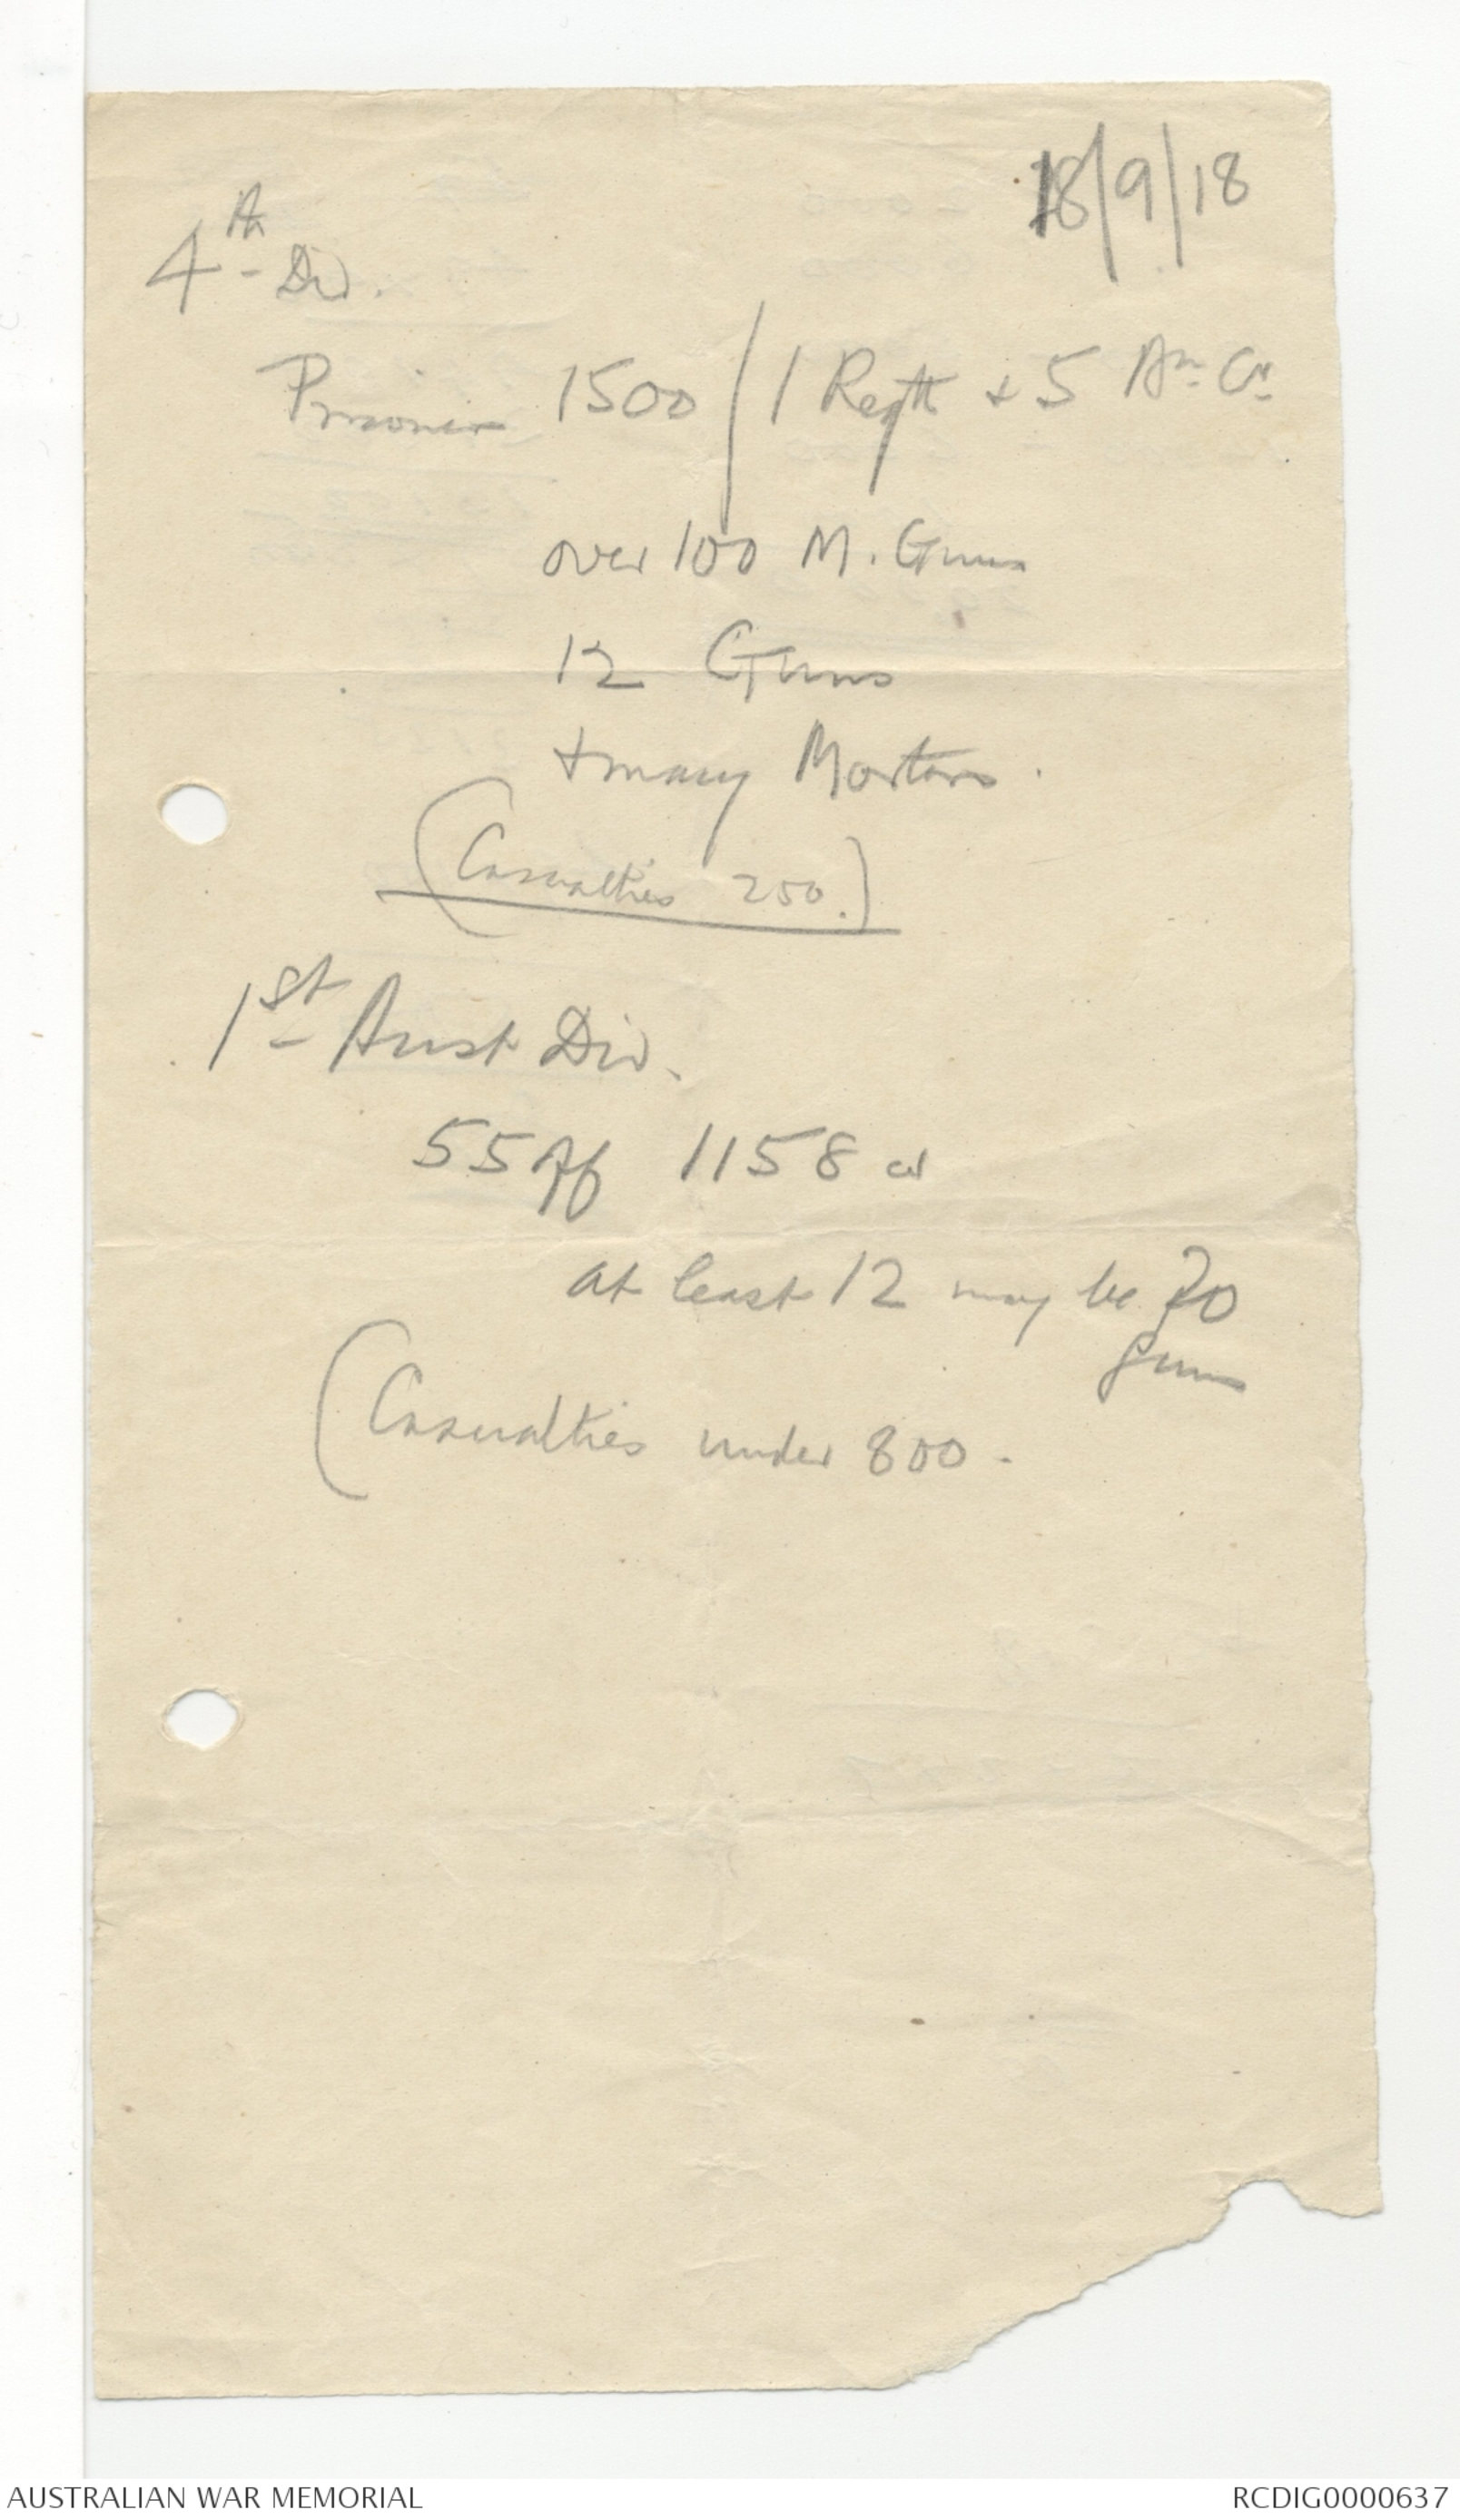 18/9/18
4th Div.
Prisoners 1500 / 1 Regtl + 5 Bn Crs
over 100 M. Guns
12 Guns
+ many Mortars.
(Casualties 250.)
1st Aust Div.
55 Off 1158 or
at least 12 may be 20
guns
(Casualties under 800.
AUSTRALIAN WAR MEMORIAL
RCDIG0000637